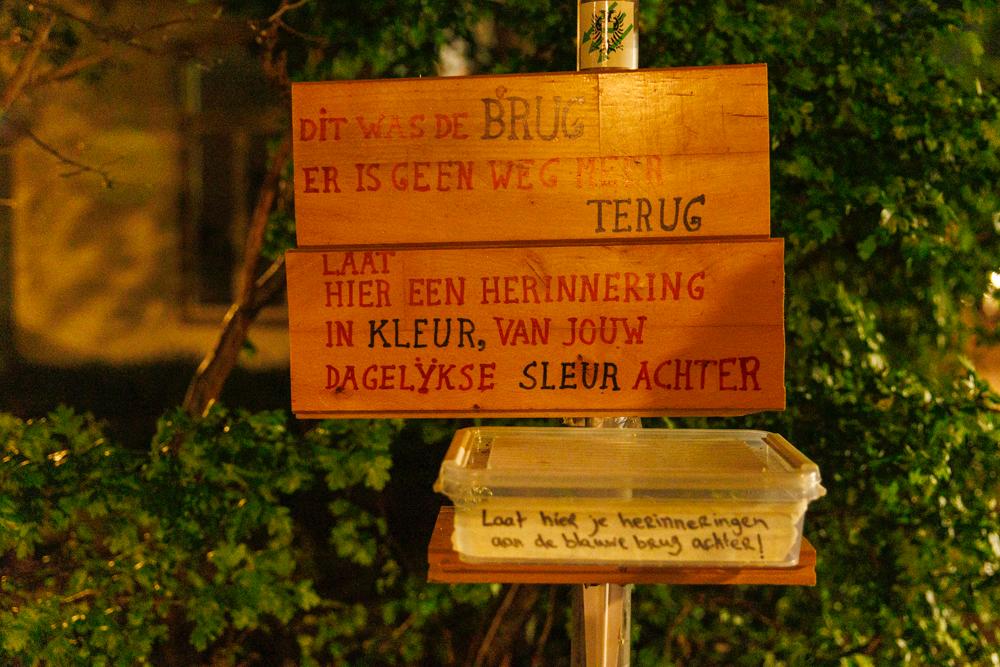 DIT WAS DE BRUG
ER IS GEEN WEG MEER
TERUG
LAAT
HIER EEN HERINNERING
IN KLEUR, VAN JOUW
DAGELIJKSE SLEUR ACHTER
Laat hier je herinneringen
aan de blauwe brug achter!